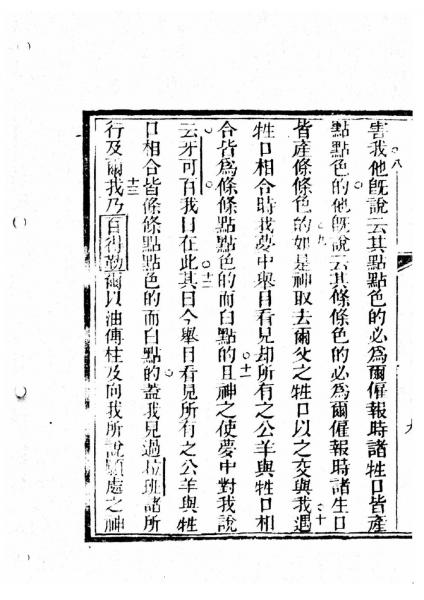 害我他既說云其點點色的必為爾僱報時諸牲口皆產
點點色的他既說云其條條色的必為爾僱報時諸生口
皆產條條色的如是神取去爾父之牲口以之交與我遇
牲口相合時我夢中舉目看見却所有之公羊與牲口相
合皆為條條點點色的而白點的且神之使夢中對我說
云牙可百我曰在此其曰今舉目看見所有之公羊與牲
口相合皆條條點點色的而白點的蓋我見過拉班諸所
行及爾我乃百得勒爾以油傅柱及向我所說願處之神
八
九
十
十一
十二
十三